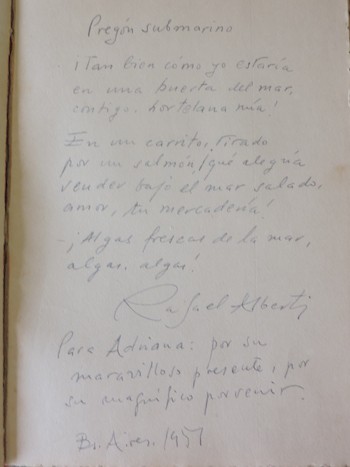 Pregón submarino
¡Tan bien cómo yo estaría
en una huerta del mar,
contigo, hortelana mía!
En un carrito, tirado
por un salmón, ¡qué alegría
vender bajo el mar salado,
amor, tu mercadería!
- ¡Algas frescas de la mar,
algas, algas!
Rafael Alberti
Para Adriana: por su
maravilloso presente, por
su magnífico porvenir.
Bs. Aires. 1951